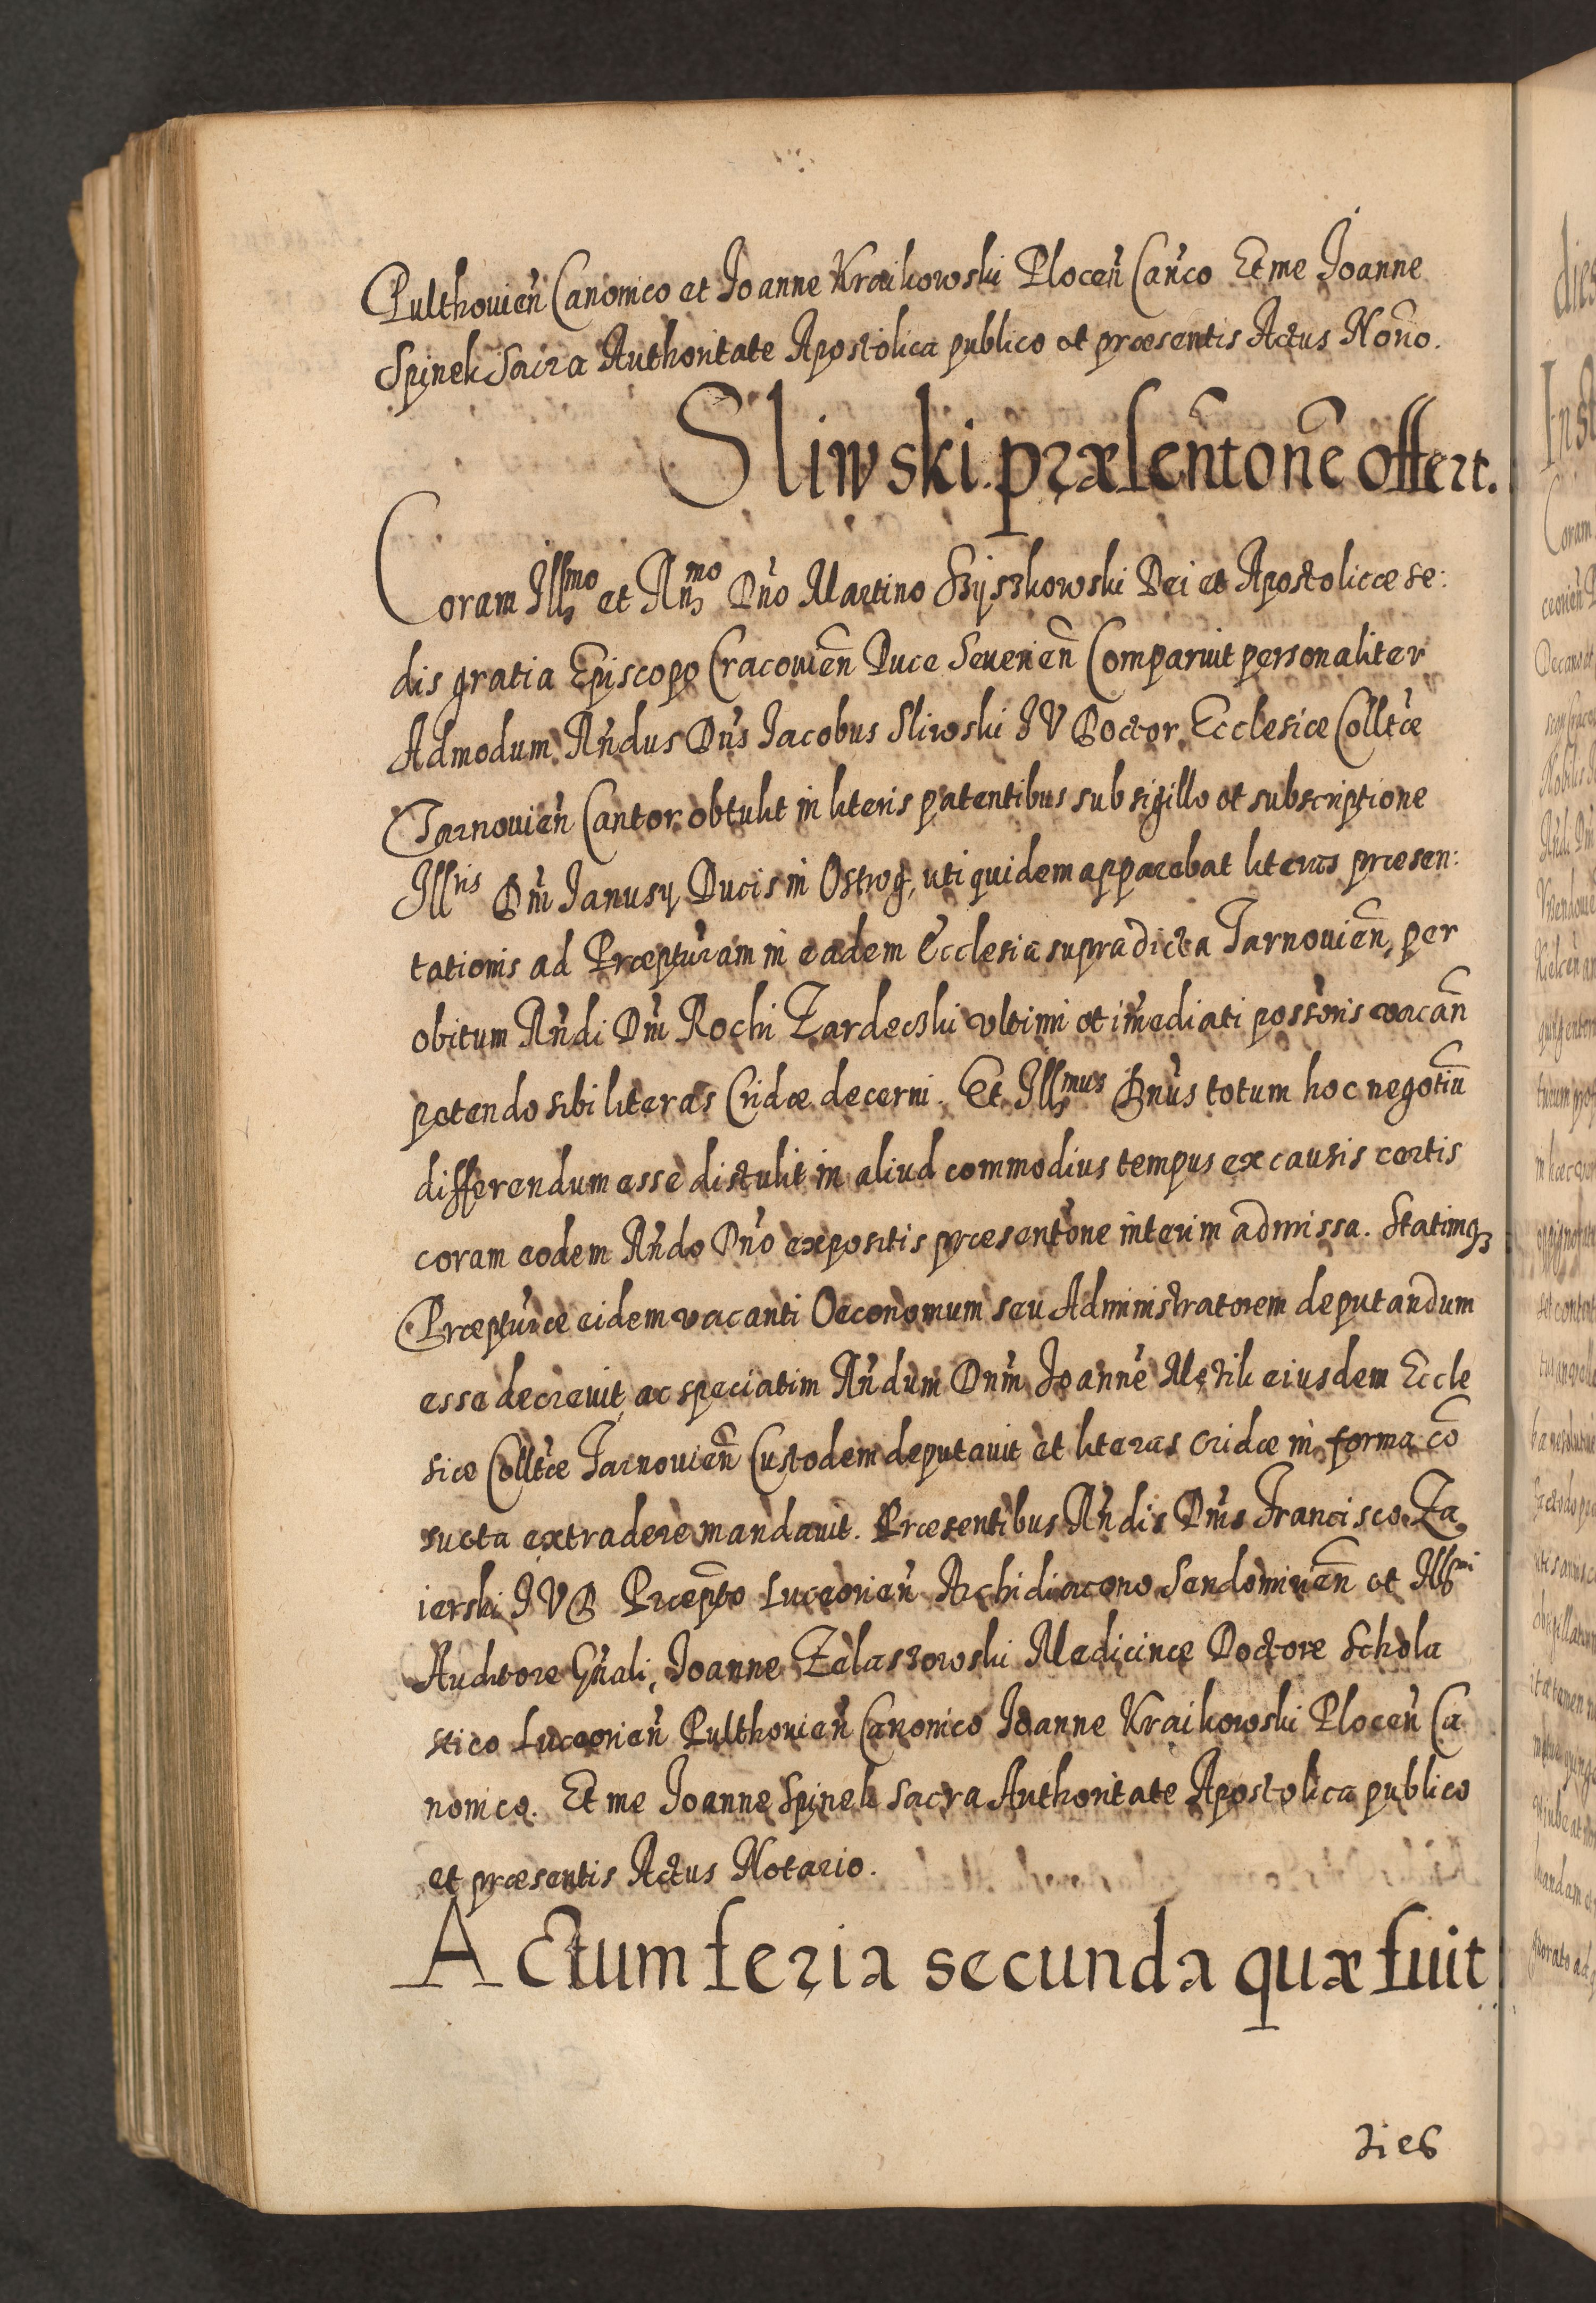 Pulthouien̄ Canonico et Joanne Kraikowski Plocen̄ Can̄co Et me Joanne
Spinek Sacra Authoritate Apostolica publico et præsentis Actus Nor̄io.
Sliwski præsen̄tonē offert.
Coram Illmo et Rn̄mo Dn̄o Martino Szyszkowski Dei et Apostolicæ se:
dis gratia Episcopo Cracouien̄ Duce Seuerien̄ Comparuit personaliter
Admodum Rn̄dus Dn̄s Jacobus Sliwski JV Doctor, Ecclesiæ Colltæ
Tarnouien̄ Cantor obtulit in literis patentibus sub sigillo et subscriptione
Illris Dn̄i Janusy Ducis in Ostrog, uti quidem apparebat literas præsen:
tationis ad Præptur̄am in eadem Ecclesia supradicta Tarnouien̄, per
obitum Rn̄di Dn̄i Rochi Zardecki vltimi et im̄ediati possōris vacan̄
petendo sibi literas Cridæ decerni. Et Illmus Dn̄us totum hoc negotiū
differendum esse distulit in aliud commodius tempus ex causis certis
coram eodem Rn̄do Dn̄o expositis præsentōne interim admissa. Statimq3
Præptur̄æ eidem vacanti Oeconomum seu Administratorem deputandum
esse decreuit, ac speciatim Rn̄dum Dn̄m Joannē eiusdem Eccle
siæ Colltæ Tarnouien̄ Custodem deputauit et literas cridæ in forma cō
sueta extradere mandauit. Præsentibus Rn̄dis Dn̄is Francisco Za
ierski JVD Præpto Luceorien̄ Archidiacono Sendomirien̄ et Illmi
Auditore Gn̄ali, Joanne Zelaszowski Medicinæ Doctore Schola
stico Luceorien̄ Pulthouien̄ Canonico Joanne Kraikowski Plocen̄ Ca
nonico. Et me Joanne Spinek Sacra Authoritate Apostolica publico
et præsentis Actus Notario.
Actum feria secunda quæ fuit
dies